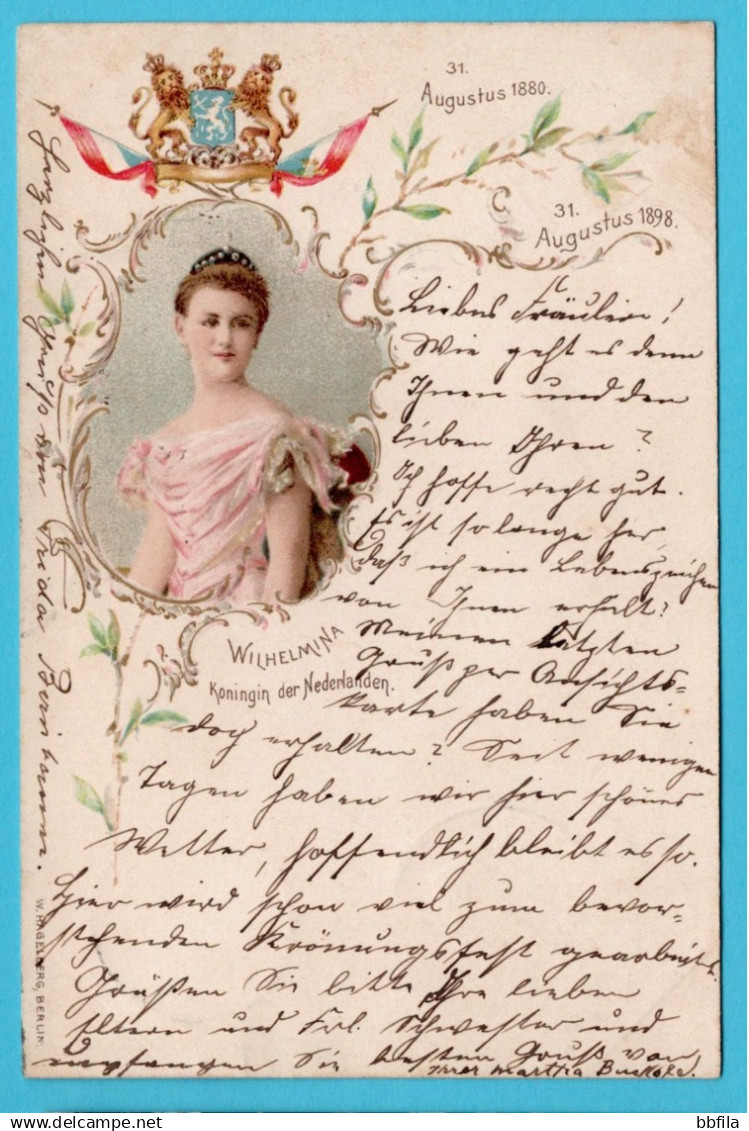 31.
Augustus 1880.
31.
Augustus 1898.
Liebes Fräulein!
Wie geht es denn
Ihnen und den
lieben Ihren?
Ich hoffe recht gut.
Es ist so lange her,
daß ich ein Lebenszeichen
von Ihnen erhalt?
Meinen letzten
Gruß per Ansichts-
karte haben Sie
doch erhalten? Seit wenigen
Tagen haben wir hier schönes
Wetter, hoffendlich bleibt es so.
Hier wird schon viel zum bevor-
stehenden Krönungsfest gearbeitet.
Grüßen Sie bitte Ihre lieben
Eltern und Frl. Schwester und
empfangen Sie besten Gruß von
Ihrer
WILHELMINA
Koningin der Nederlanden.
Herzlichen Gruß von Frida
W. HAGELBERG, BERLIN.
bbfila